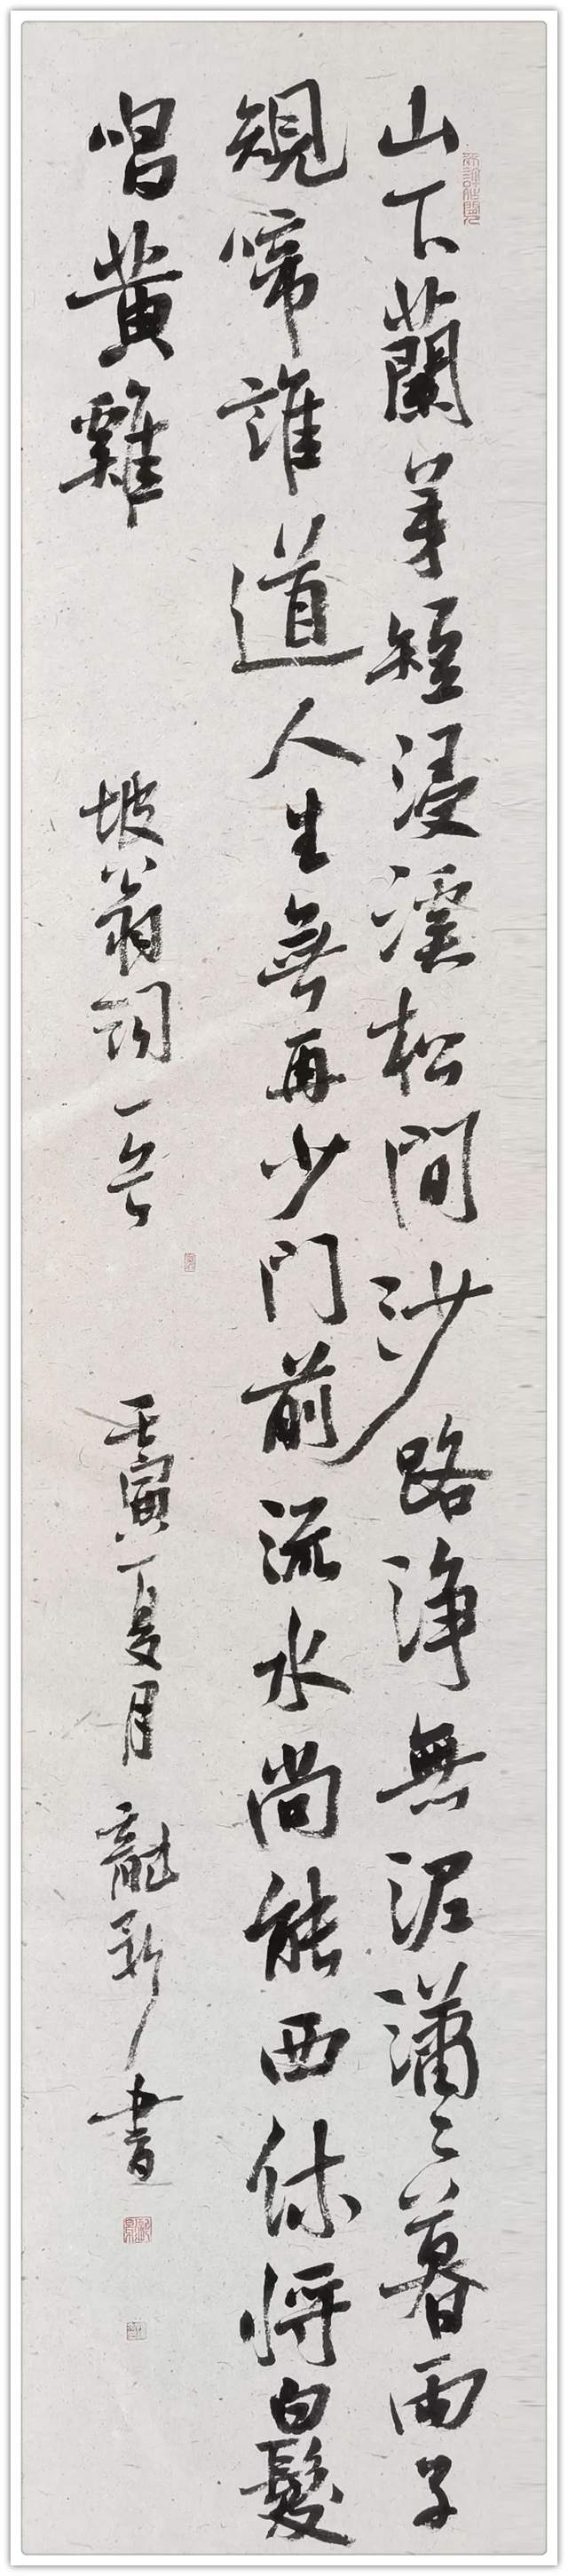 山下蘭芽短浸溪松間沙路淨無泥瀟〻暮雨子
規啼誰道人生無再少門前流水尚能西休將白髮
唱黃雞
坡翁詞一首
壬寅夏月龍彩書